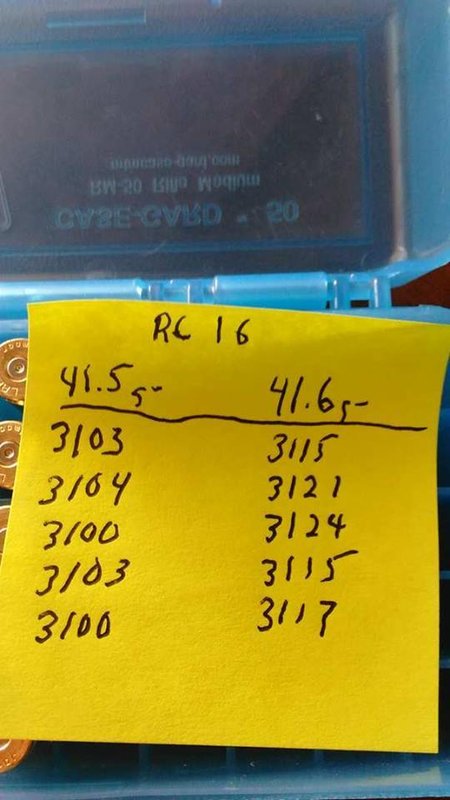 mtmcase-gard.com
RM-50 Rifle Medium
CASE-GARD · 50
RL 16
41.5 gr 41.6 gr
3103 3115
3104 3121
3100 3124
3103 3115
3100 3117